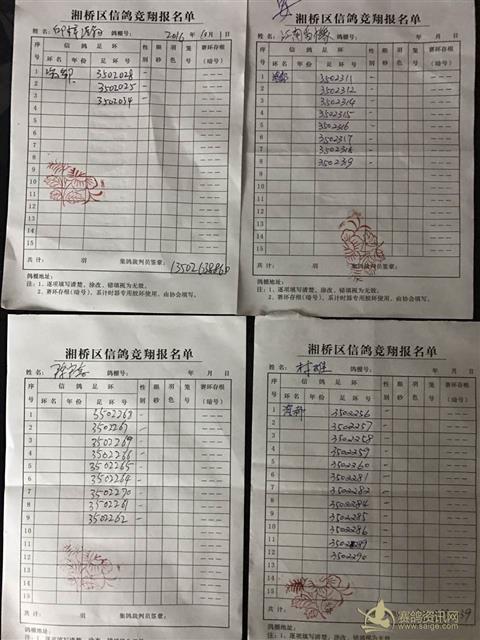 湘桥区信鸽竞翔报名单
姓名： 鸽棚号： 2016年10月1日
序号 信鸽足环 性别 眼砂 羽色 笼号 赛环存根(暗号)
环名 年份 足环号
1 3502028
2 3502025
3 3502034
4
5
6
7
8
9
10
11
12
13
14
15
共计： 羽 集鸽裁判员签章：
鸽棚地址：
注：1、逐项填写清楚、涂改、错填视为无效。
2、赛环存根(暗号)、系计时器专用胶环使用、由协会填写。
湘桥区信鸽竞翔报名单
姓名： 鸽棚号： 年 月 日
序号 信鸽足环 性别 眼砂 羽色 笼号 赛环存根(暗号)
环名 年份 足环号
1 3502311
2 3502312
3 3502314
4 3502315
5 3502316
6 3502317
7 3502318
8 3502319
9
10
11
12
13
14
15
共计： 羽 集鸽裁判员签章：
鸽棚地址：
注：1、逐项填写清楚、涂改、错填视为无效。
2、赛环存根(暗号)、系计时器专用胶环使用、由协会填写。
湘桥区信鸽竞翔报名单
姓名： 鸽棚号： 年 月 日
序号 信鸽足环 性别 眼砂 羽色 笼号 赛环存根(暗号)
环名 年份 足环号
1 3502263
2 3502267
3 3502269
4 3502266
5 3502265
6 3502264
7 3502270
8 3502261
9 3502262
10
11
12
13
14
15
共计： 羽 集鸽裁判员签章：
鸽棚地址：
湘桥区信鸽竞翔报名单
姓名：林雄 鸽棚号： 年 月 日
序号 信鸽足环 性别 眼砂 羽色 笼号 赛环存根(暗号)
环名 年份 足环号
1 3502256
2 3502257
3 3502258
4 3502259
5 3502260
6 3502281
7 3502282
8 3502284
9 3502285
10 3502286
11 3502289
12 3502290
13
14
15
共计： 羽
鸽棚地址：
注：1、逐项填写清楚、涂改、错填视为无效。
赛鸽资讯网
www.saige.com